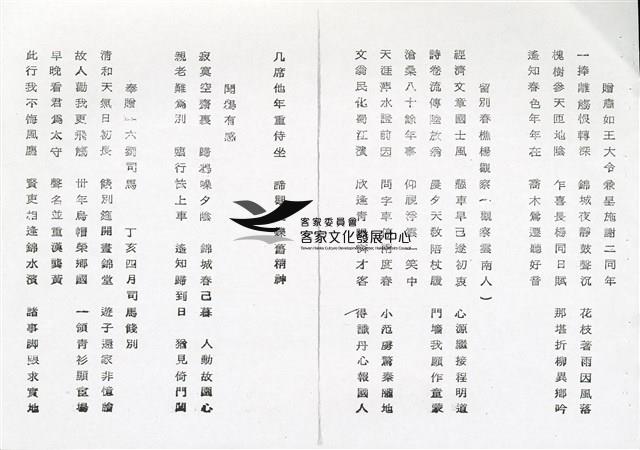 贈肅如王大令兼呈施謝二同年
一捧離觴恨轉深　錦城夜靜鼓聲沉　花枝著雨因風落
槐樹參天匝地陰　乍喜長楊同日賦　那堪折柳異鄉吟
遙知春色年年在　喬木鶯遷聽好音
留別春樵楊觀察（觀察雲南人）
經濟文章國士風　懸車早已遂初衷　心源繼接程明道
詩卷流傳陸放翁　晨夕天教陪杖履　門墻我願作童蒙
滄桑八十餘年事　仰視浮雲　笑中
天涯萍水證前因　問字車停兩度春　小范　驚秦隴地
文翁民化蜀江濱　欣逢青　才客　得讖丹心報國人
几席他年重侍坐　諦　舊精神
聞鴉有感
寂寞空齋裏　歸鴉噪夕陰　錦城春已暮　人動故園心
親老難為別　臨行怯上車　遙知歸到日　猶見倚門閭
奉贈　六劉司馬　丁亥四月司馬餞別
清和天氣日初長　餞別筵開晝錦堂　遊子還家非憶
故人勸我更飛觴　卅年烏帽榮鄉國　一領青衫顯宦場
早晚看君為太守　聲名並重漢龔黃
此行我不悔風塵　賢更相逢錦水濱　諸事脚　求實地
客家委員會
客家文化發展中心